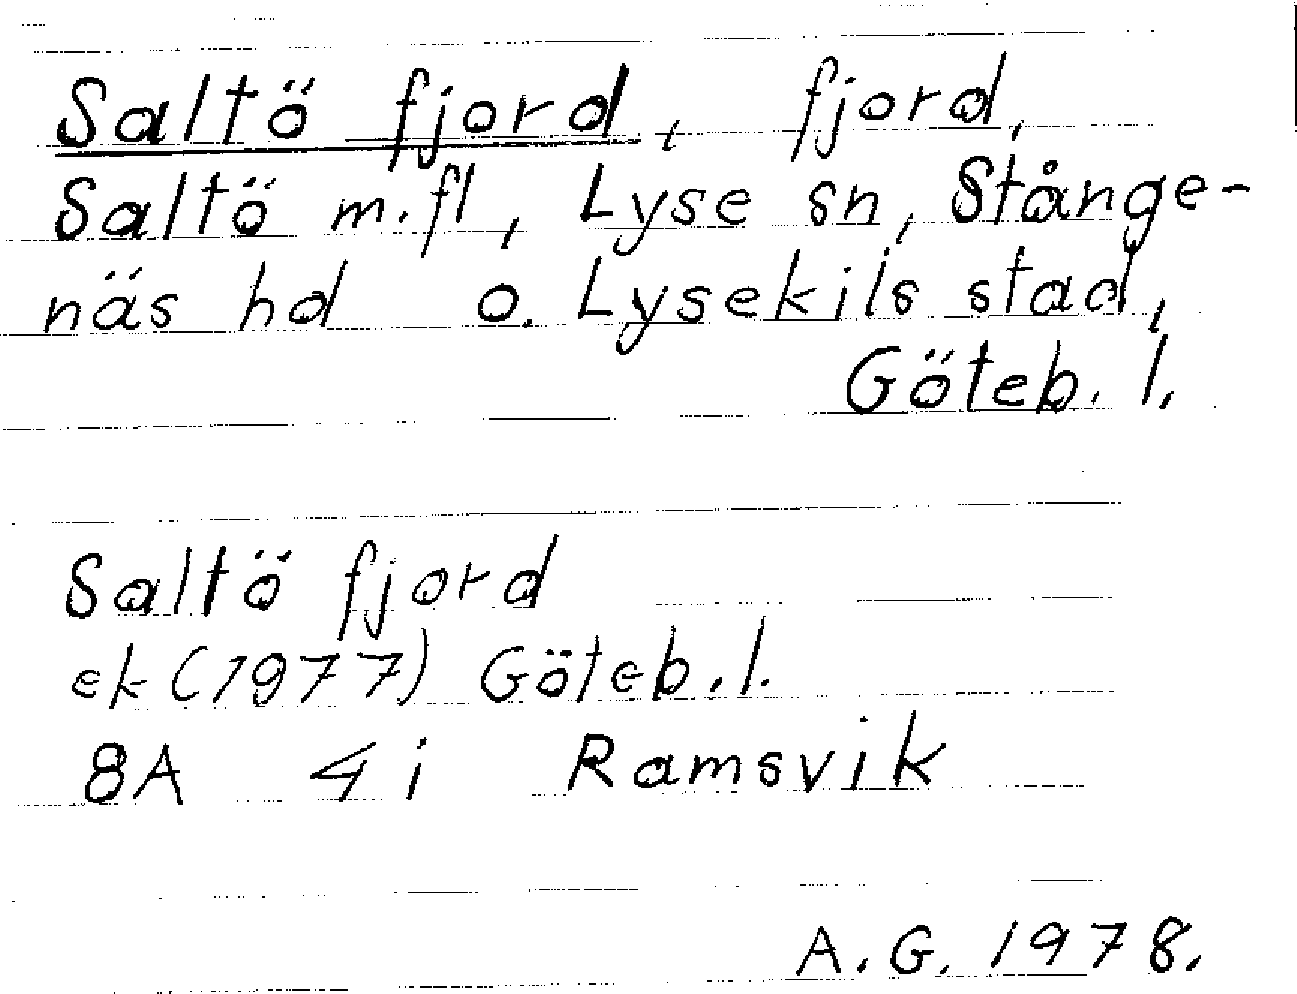 Saltö fjord, fjord,
Saltö m.fl, Lyse sn, Stånge-
näs hd o. Lysekils stad,
Göteb. l.
Saltö fjord
ek (1977) Göteb. l.
8A 4i Ramsvik
A. G. 1978.